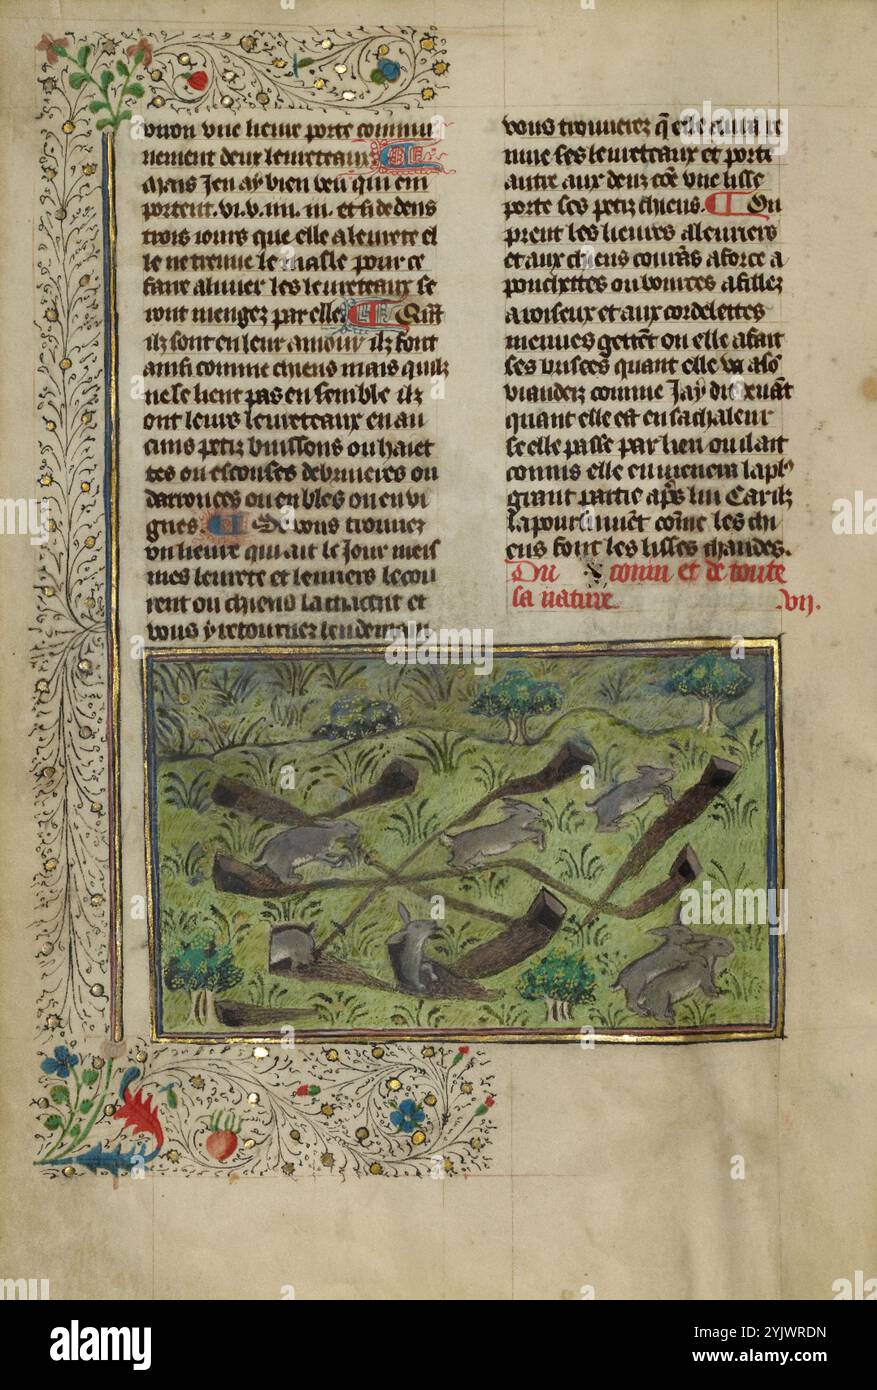 vnon vne lieure porte commu
nement deux leureteaux
Mais Jen ay bien veu qui em
portent .vi. v. iiii. iii. et si dedens
trois iours que elle a leurete el
le ne treuue le masle pour ce
faire aliuier les leureteaux se
ront mengez par elle. Quāt
ilz sont en leur amour ilz font
ainsi comme chiens mais quilz
ne se lient pas ensemble ilz
ont leurs leureteaux en au
cuns petiz buissons ou haiet
tes ou escouses de bruieres ou
ou en bles ou en vi
gnes. Se vous trouuez
vn lieure qui ait le Jour meis
mes leurete et leuriers le cou
rent ou chiens la chacent et
vous y retournez lendemain
vous trouuerez q̄ elle aura re
mue ses leureteaux et porte
autre aux dens cōe vne lisse
porte ses petiz chiens. Ou
prent les lieures a leuriers
et aux chiens courās a force a
pouchettes ou bources a fillez
a oiseux et aux cordelettes
menues gettēt ou elle a fait
ses brisees quant elle va a so
viander comme Jay dit deuāt
quant elle est en sa chaleur
se elle passe par lieu ou il ait
connis elle en la pl⁹
grant partie ap̄s lui Car ilz
la poursuiuēt cōme les chi
ens font les lisses chaudes.
Du conin et de toute
sa nature .vij.
alamy
Image ID: 2YJWRDN
www.alamy.com